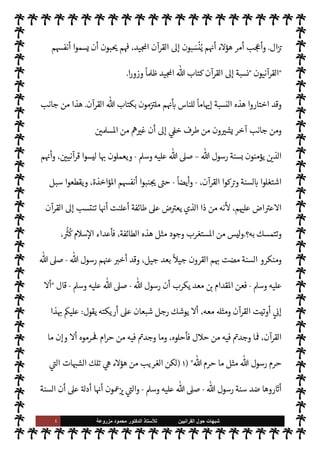 تزال. وأعجب أمر هؤلاء أنهم يُنْسَبون إلى القرآن المجيد، فهم يحبون أن يسموا أنفسهم
"القرآنيون "نسبة إلى القرآن كتاب الله المجيد ظلماً وزورا.
وقد اختاروا هذه النسبة إيهاماً للناس بأنهم ملتزمون بكتاب الله القرآن. هذا من جانب
ومن جانب آخر يشيرون من طرف خفي إلى أن غيرهم من المسلمين
الذين يؤمنون بسنة رسول الله – صلى الله عليه وسلم - ويعملون بها ليسوا قرآنيين، وأنهم
اشتغلوا بالسنة وتركوا القرآن، - وأيضاً - حتى يجنبوا أنفسهم المؤاخذة، ويقطعوا سبل
الاعتراض عليهم، لأنه من ذا الذي يعترض على طائفة أعلنت أنها تنتسب إلى القرآن
وتتمسك به؟.وليس من المستغرب وجود مثل هذه الطائفة، فأعداء الإسلام كُثُر،
ومنكرو السنة مضت بهم القرون جيلاً بعد جيل، وقد أخبر عنهم رسول الله - صلى الله
عليه وسلم - فعن المقدام بن معد يكرب أن رسول الله - صلى الله عليه وسلم - قال "ألا
إني أوتيت القرآن ومثله معه، ألا يوشك رجل شبعان على أريكته يقول: عليكم بهذا
القرآن، فما وجدتم فيه من حلال فأحلوه، وما وجدتم فيه من حرام فحرموه ألا وإن ما
حرم رسول الله مثل ما حرم الله" (١ )لكن الغريب من هؤلاء هي تلك الشبهات التي
أثاروها ضد سنة رسول الله - صلى الله عليه وسلم - والتي يزعمون أنها أدلة على أن السنة
شبهات حول القرآنيين للأستاذ الدكتور محمود مزروعة ٤